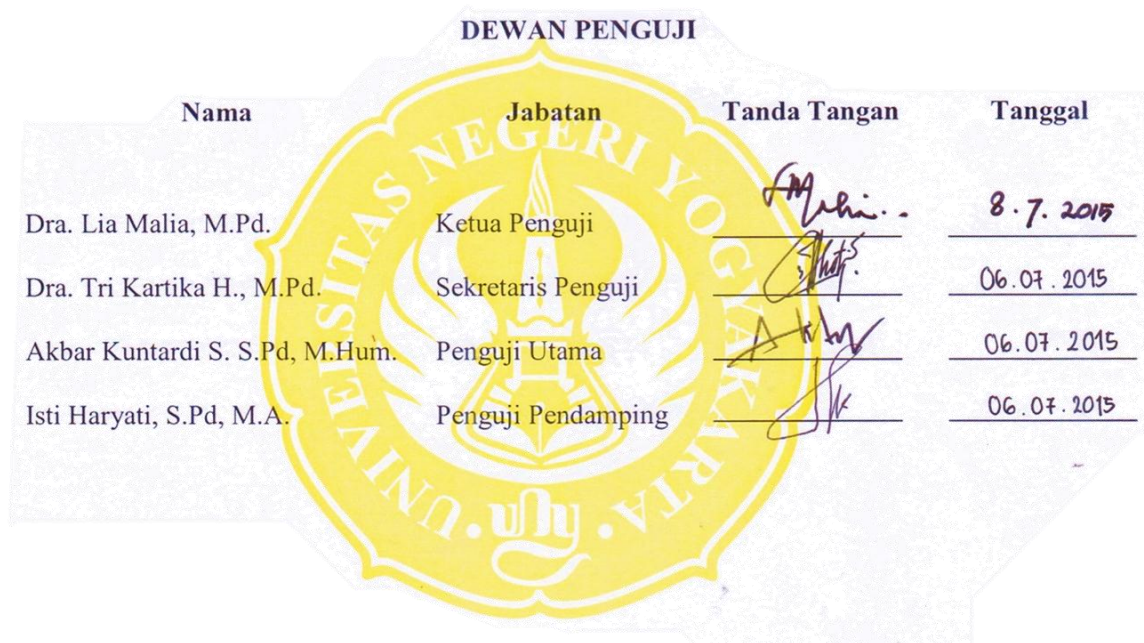 DEWAN PENGUJI
Nama Jabatan Tanda Tangan Tanggal
Dra. Lia Malia, M.Pd. Ketua Penguji 8.7.2015
Dra. Tri Kartika H., M.Pd. Sekretaris Penguji 06.07.2015
Akbar Kuntardi S. S.Pd, M.Hum. Penguji Utama 06.07.2015
Isti Haryati, S.Pd, M.A. Penguji Pendamping 06.07.2015
UNIVERSITAS NEGERI YOGYAKARTA
uny